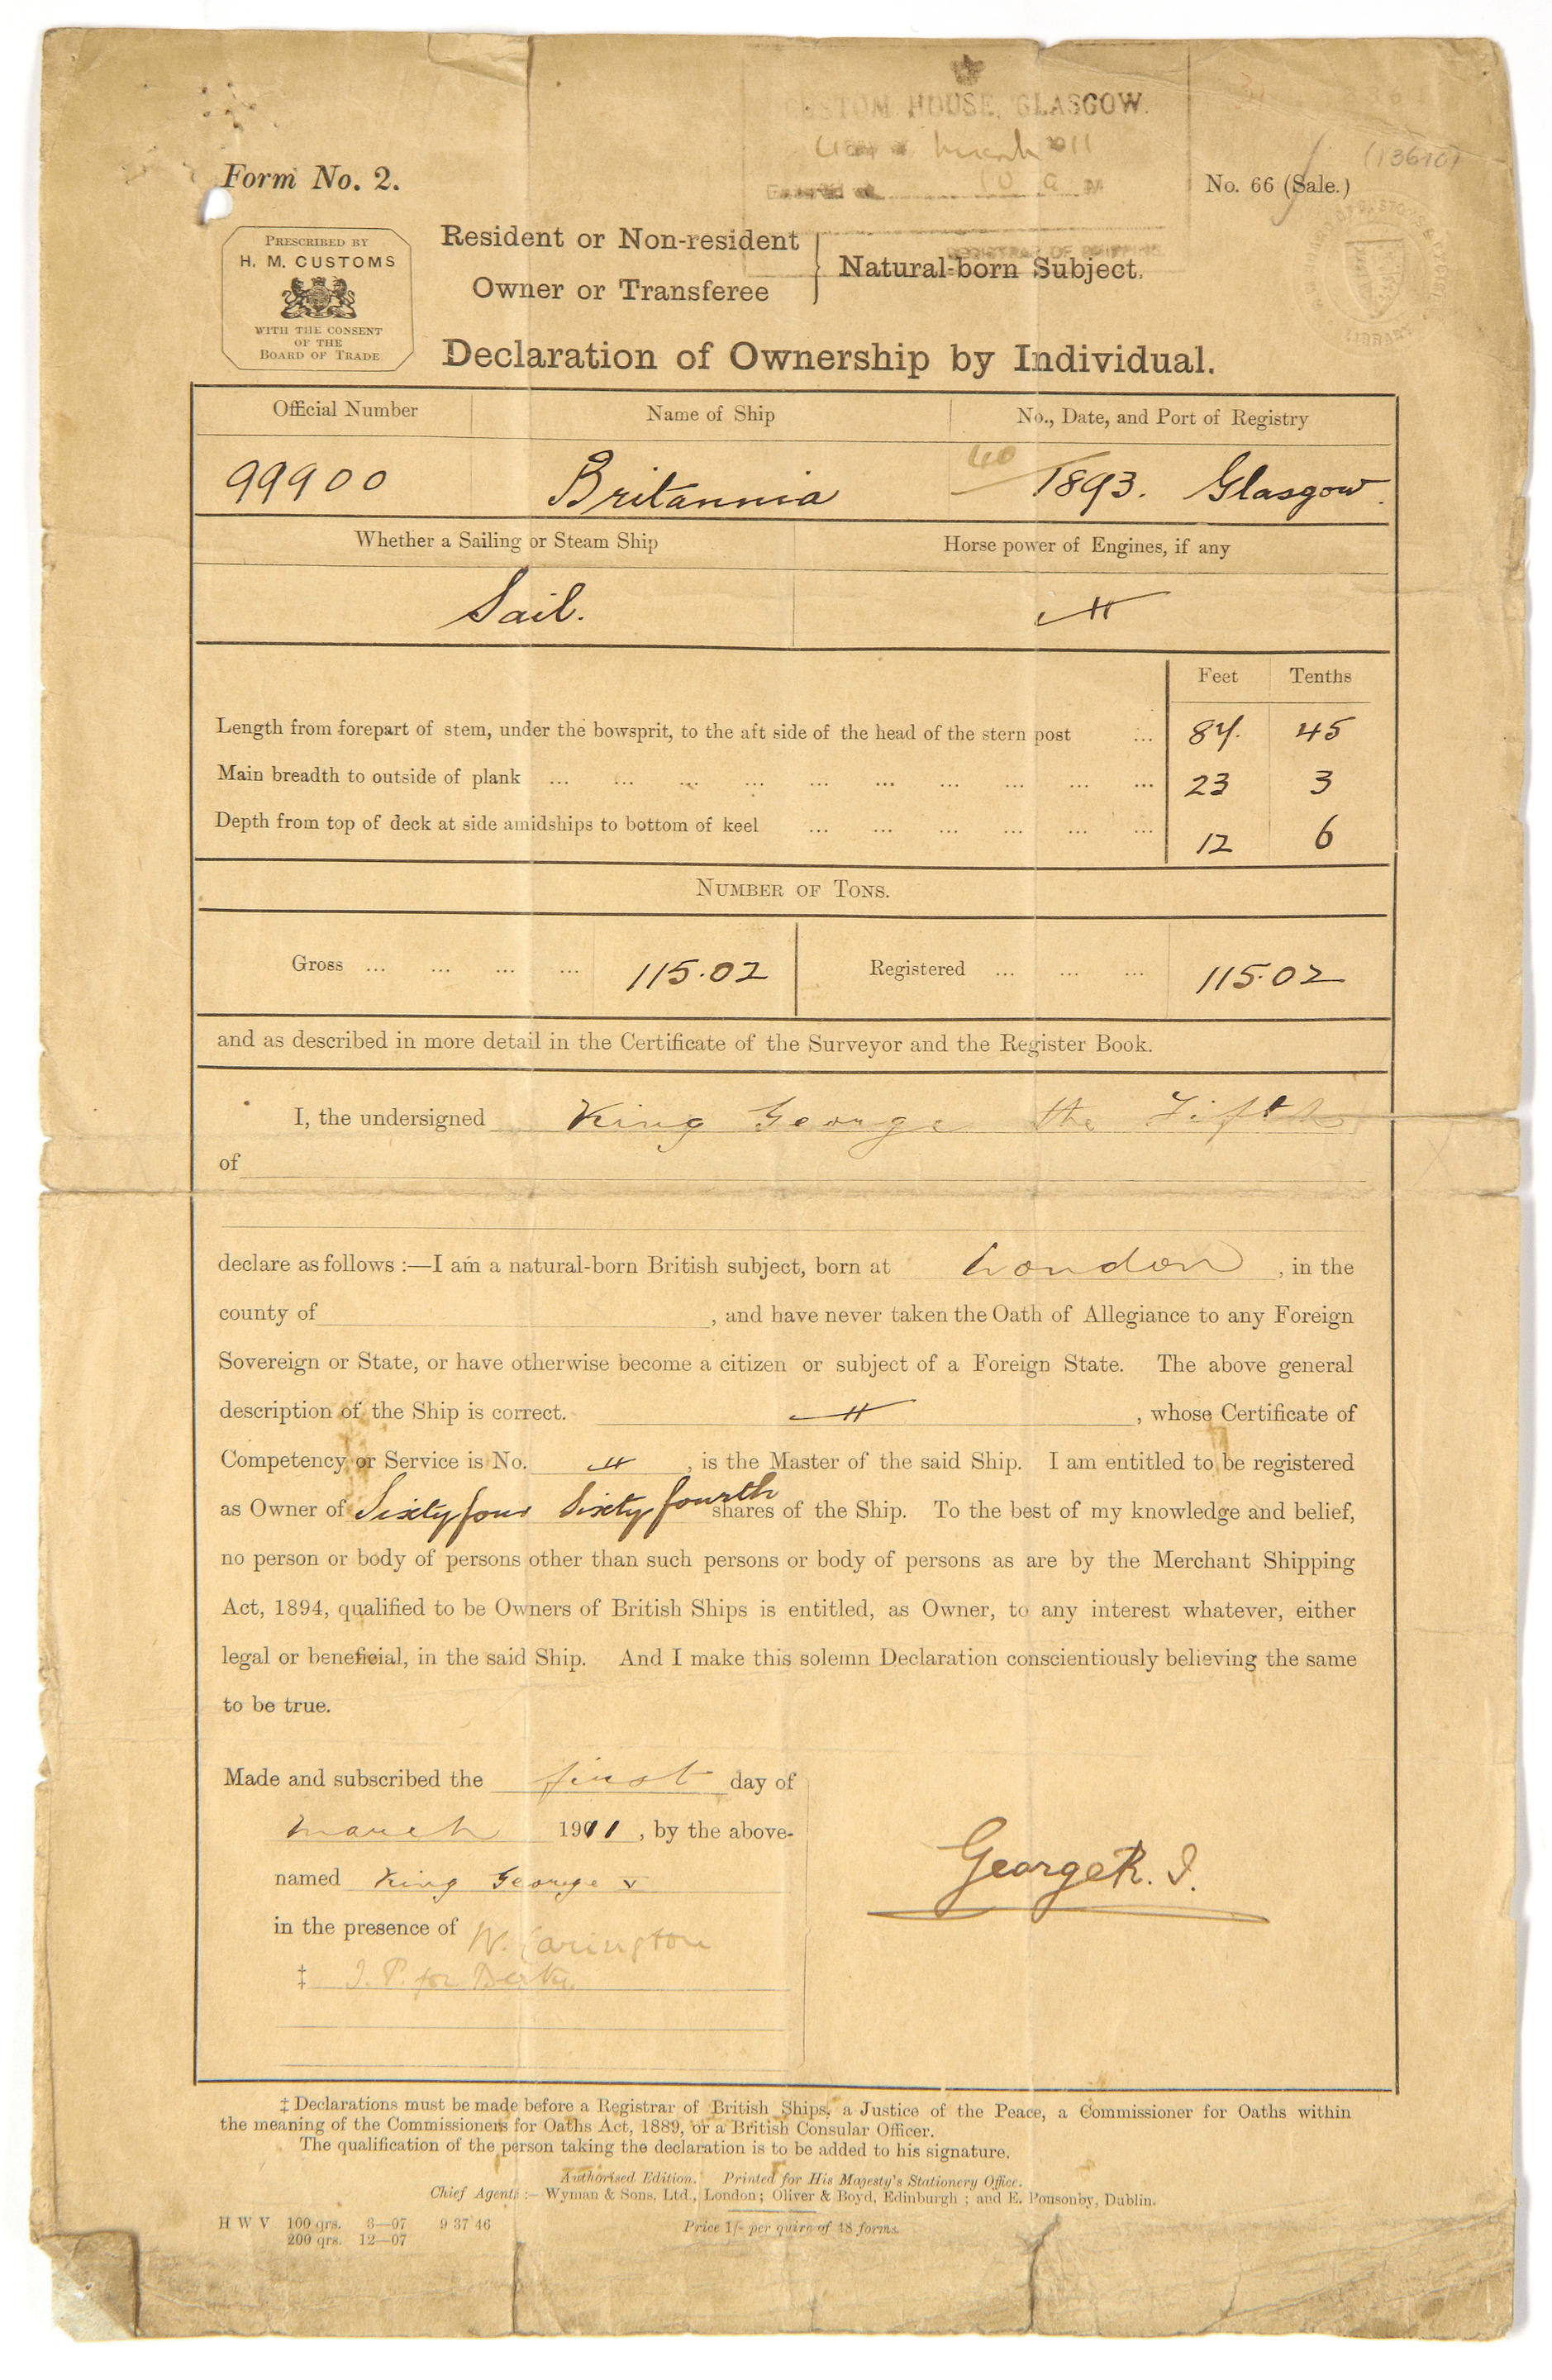 CUSTOM HOUSE, GLASGOW.
March 1911
10 a M
(13610)
Form No. 2.
No. 66 (Sale.)
PRESCRIBED BY
H. M. CUSTOMS
WITH THE CONSENT
OF THE
BOARD OF TRADE
Resident or Non-resident
Owner or Transferee
Natural-born Subject.
REGISTRAR OF SHIPPING
LIBRARY
Declaration of Ownership by Individual.
Official Number Name of Ship No., Date, and Port of Registry
99900 Britannia 40/1893. Glasgow.
Whether a Sailing or Steam Ship Horse power of Engines, if any
Sail.
Feet Tenths
Length from forepart of stem, under the bowsprit, to the aft side of the head of the stern post ... 87. 45
Main breadth to outside of plank ... ... ... ... ... ... ... ... ... ... 23 3
Depth from top of deck at side amidships to bottom of keel ... ... ... ... ... ... 12 6
NUMBER OF TONS.
Gross ... ... ... ... 115.02 Registered ... ... ... 115.02
and as described in more detail in the Certificate of the Surveyor and the Register Book.
I, the undersigned King George the Fifth
of
declare as follows :—I am a natural-born British subject, born at London , in the
county of , and have never taken the Oath of Allegiance to any Foreign
Sovereign or State, or have otherwise become a citizen or subject of a Foreign State. The above general
description of the Ship is correct. , whose Certificate of
Competency or Service is No. , is the Master of the said Ship. I am entitled to be registered
as Owner of Sixty four Sixty fourth shares of the Ship. To the best of my knowledge and belief,
no person or body of persons other than such persons or body of persons as are by the Merchant Shipping
Act, 1894, qualified to be Owners of British Ships is entitled, as Owner, to any interest whatever, either
legal or beneficial, in the said Ship. And I make this solemn Declaration conscientiously believing the same
to be true.
Made and subscribed the first day of
March 1911 , by the above-
named King George V
George R. I.
in the presence of W. Carington
‡ J. P. for Berks.
‡ Declarations must be made before a Registrar of British Ships, a Justice of the Peace, a Commissioner for Oaths within
the meaning of the Commissioners for Oaths Act, 1889, or a British Consular Officer.
The qualification of the person taking the declaration is to be added to his signature.
Authorised Edition. Printed for His Majesty's Stationery Office.
Chief Agents :— Wyman & Sons, Ltd., London; Oliver & Boyd, Edinburgh; and E. Ponsonby, Dublin.
H W V 100 qrs. 3—07 9 37 46
200 qrs. 12—07
Price 1/- per quire of 48 forms.